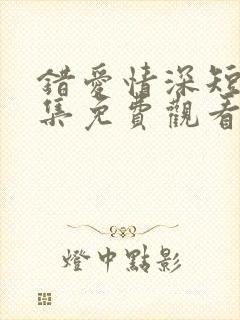 錯愛情深短
集免費觀看
燈中點影